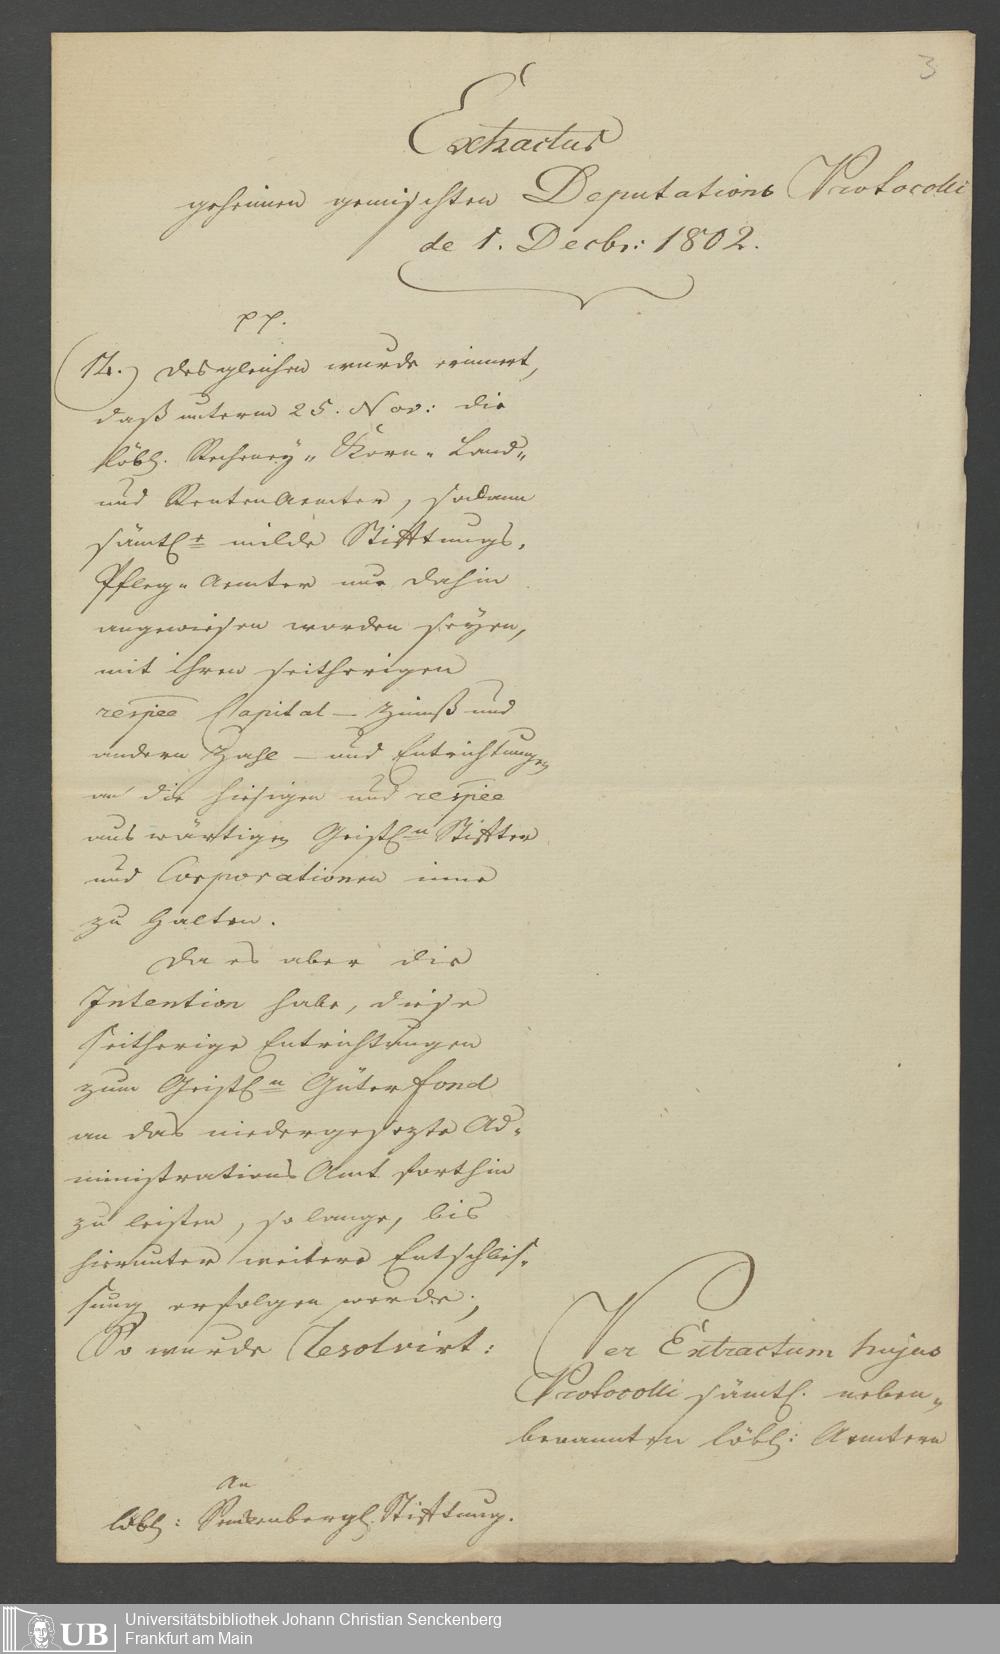 3
Extractus
geheimen gemischten Deputations Protocolli
de 1. Decbr: 1802.
pp.
14.) Desgleichen wurde erinnert,
daß unterm 25. Nov: die
löbl. Recheney- Korn- Land-
und RentenAemter, sodann
sämtle milde Stifftungs-
Pfleg- Aemter nur dahin
angewiesen worden seyen,
mit ihren seitherigen
respee Capital- Zinnß und
andern Zahl- und Entrichtungen
an die hiesigen und respee
auswärtigen Geistln Stiffter
und Corporationen inne
zu halten.
Da es aber die
Intention habe, diese
seitherige Entrichtungen
zum Geistln Güterfond
an das niedergesezte Ad-
ministrations Amt forthin
zu leisten, so lange, bis
hierunter weitere Entschlies-
sung erfolgen werde;
So wurde Resolvirt:
Per Extractum hujus
Protocolli sämtl. neben-
benannten löbl: Aemtern
An
löbl: Senckenbergl. Stifftung.
UB
Universitätsbibliothek Johann Christian Senckenberg
Frankfurt am Main